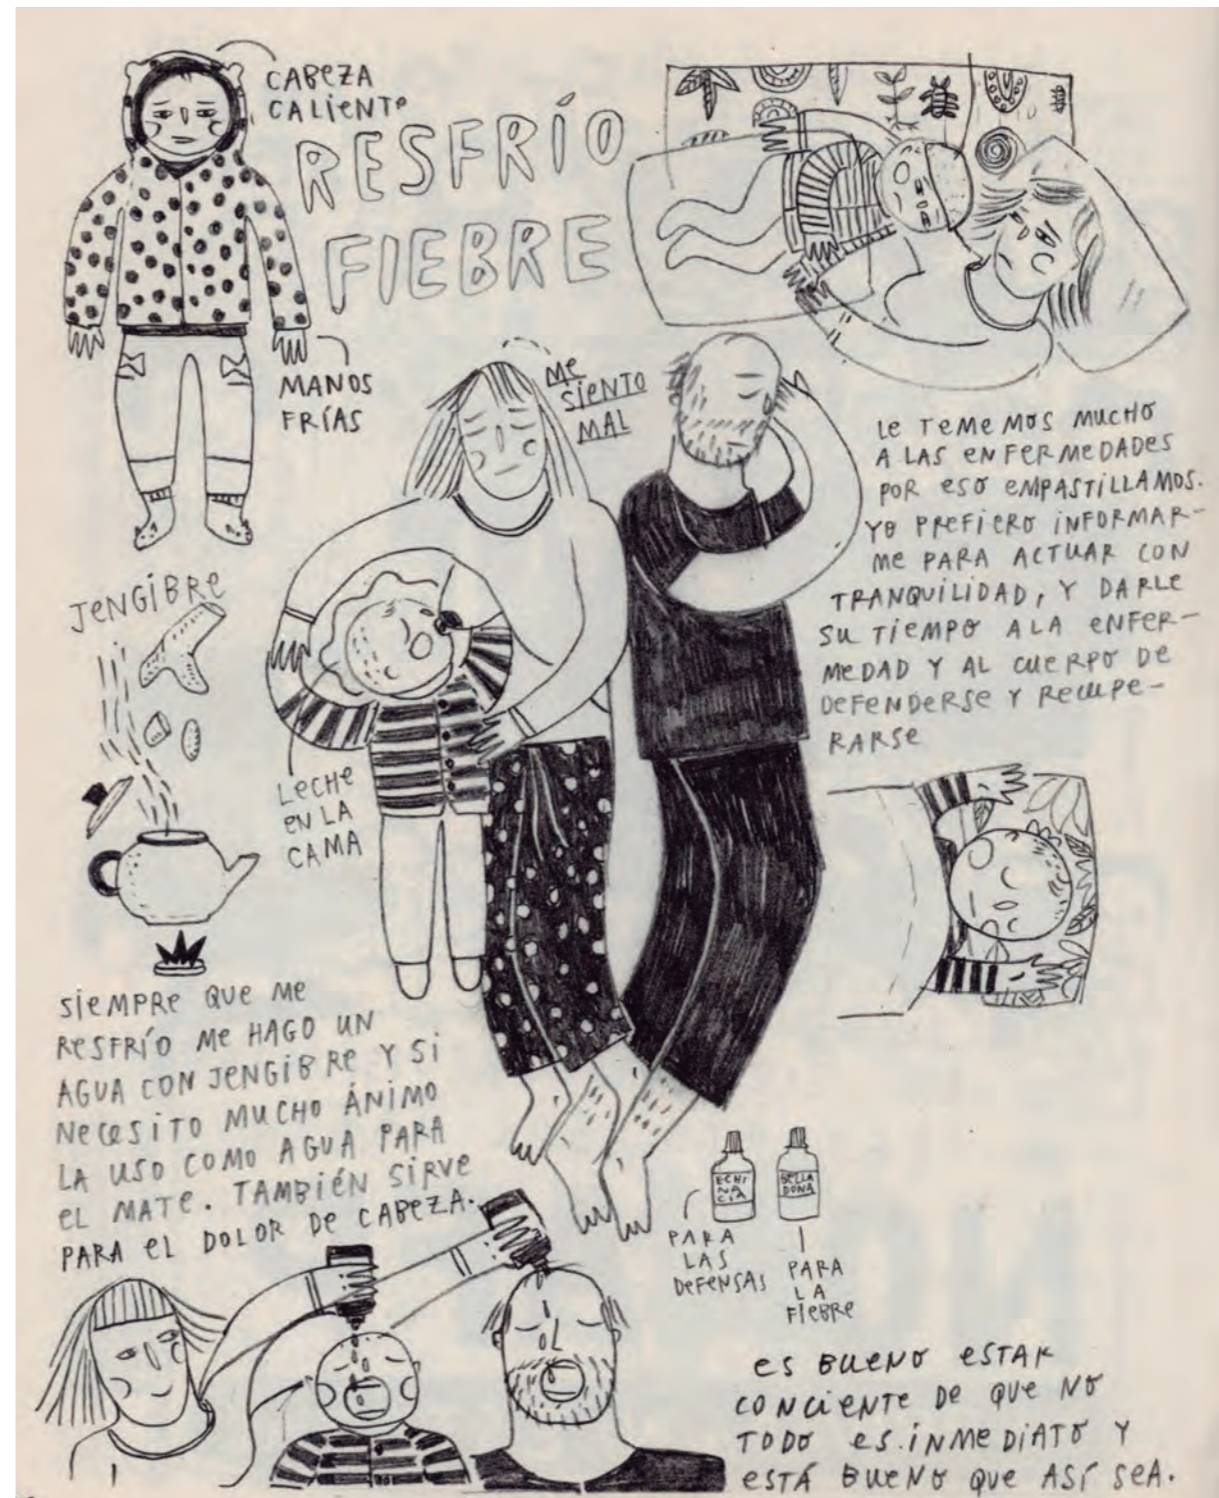 CABEZA
CALIENTE
RESFRÍO
FIEBRE
MANOS
FRÍAS
ME
SIENTO
MAL
LE TEMEMOS MUCHO
A LAS ENFERMEDADES
POR ESO EMPASTILLAMOS.
YO PREFIERO INFORMAR-
ME PARA ACTUAR CON
TRANQUILIDAD, Y DARLE
SU TIEMPO A LA ENFER-
MEDAD Y AL CUERPO DE
DEFENDERSE Y RECUPE-
RARSE
JENGIBRE
LECHE
EN LA
CAMA
SIEMPRE QUE ME
RESFRÍO ME HAGO UN
AGUA CON JENGIBRE Y SI
NECESITO MUCHO ÁNIMO
LA USO COMO AGUA PARA
EL MATE. TAMBIÉN SIRVE
PARA EL DOLOR DE CABEZA.
ECHI
NA
CIA
BELLA
DONA
PARA
LAS
DEFENSAS
PARA
LA
FIEBRE
ES BUENO ESTAR
CONCIENTE DE QUE NO
TODO ES INMEDIATO Y
ESTÁ BUENO QUE ASÍ SEA.